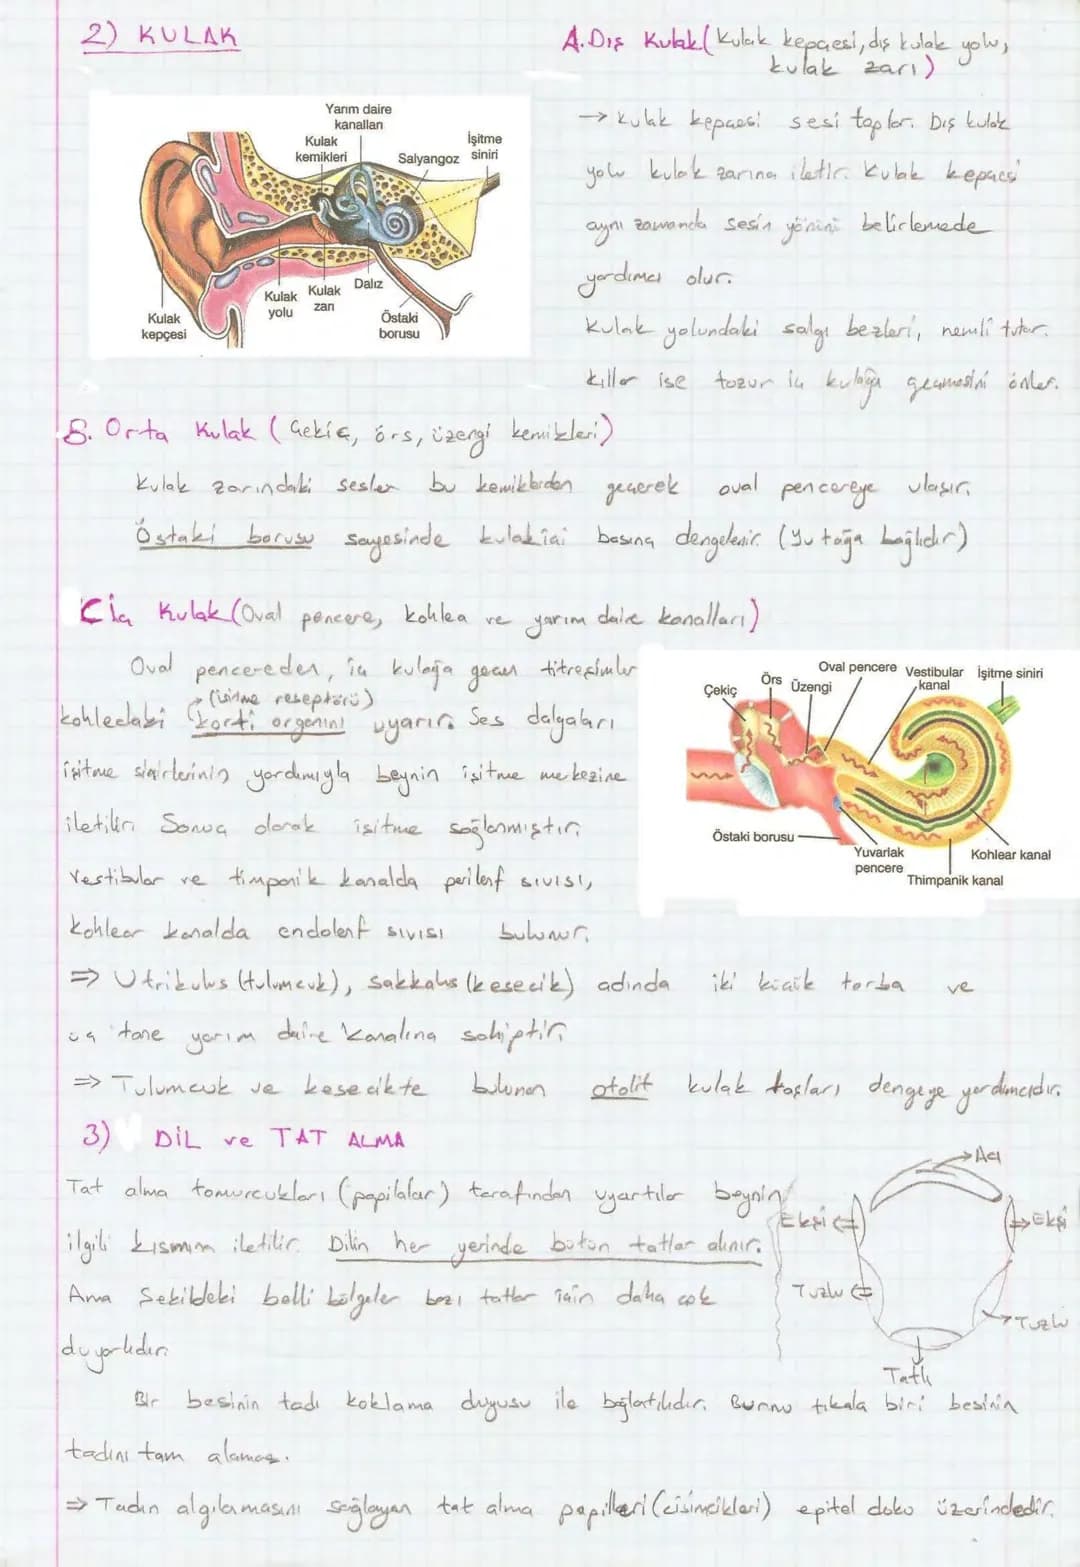 2) KULAK
A. Dış Kulak (Kulak kepçesi, dış kulak yolu,
kulak zarı)
Yarım daire
kanalları
Kulak
kemikleri
Salyangoz
İşitme
siniri
Kulak
kepçesi
Kulak
yolu
Kulak
zarı
Dalız
Östaki
borusu
→ Kulak kepçesi sesi toplar. Dış kulak
yolu kulak zarına iletir. Kulak kepçesi
aynı zamanda sesin yönünü belirlemede
yardımcı olur.
Kulak yolundaki salgı bezleri, nemli tutar.
Kıllar ise tozun iç kulağa geçmesini önler.
B. Orta Kulak (Çekiç, örs, üzengi kemikleri)
Kulak zarındaki sesler bu kemiklerden geçerek oval pencereye ulaşır.
Östaki borusu sayesinde kulak içi basınç dengelenir. (Yutağa bağlıdır)
C İç Kulak (Oval pencere, kohlea ve yarım daire kanalları)
Oval pencereden, iç kulağa geçen titreşimler
→ (işitme reseptörü)
kohledaki korti organını uyarır. Ses dalgaları
işitme sinirlerinin yardımıyla beynin işitme merkezine
iletilir. Sonuç olarak işitme sağlanmıştır.
Vestibular ve timponik kanalda perilenf sıvısı,
Kohlear kanalda endolenf sıvısı bulunur.
Çekiç
Örs
Üzengi
Oval pencere
Vestibular
kanal
İşitme siniri
Östaki borusu
Yuvarlak
pencere
Thimpanik kanal
Kohlear kanal
⇒ Utrikulus (tulumcuk), sakkalus (kesecik) adında iki küçük torba ve
üç tane yarım daire kanalına sahiptir.
⇒ Tulumcuk ve kesecikte bulunan otolit kulak taşları dengeye yardımcıdır.
3) DİL ve TAT ALMA
Tat alma tomurcukları (papilalar) tarafından uyartılar beynin
ilgili kısmına iletilir. Dilin her yerinde bütün tatlar alınır.
Ama Şekildeki belli bölgeler bazı tatlar için daha çok
duyarlıdır.
Acı
Ekşi
Ekşi
Tuzlu
Tuzlu
Tatlı
Bir besinin tadı koklama duyusu ile bağlantılıdır. Burnu tıkalı biri besinin
tadını tam alamaz.
⇒ Tadın algılamasını sağlayan tat alma papilleri (cisimcikleri) epitel doku üzerindedir.